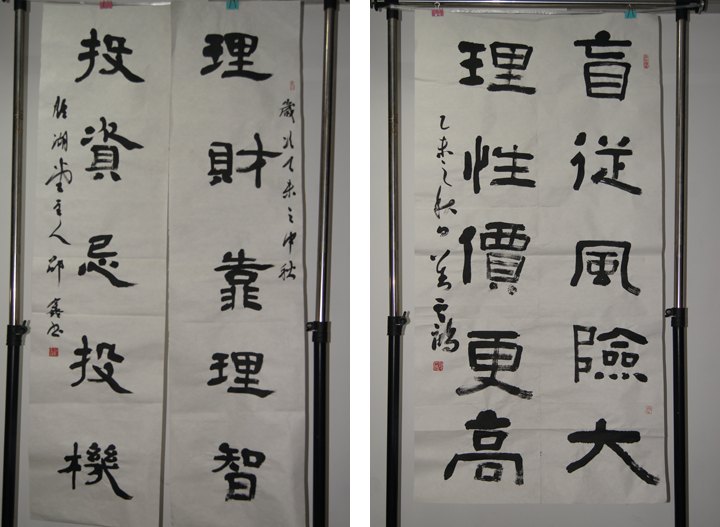 理財靠理智
歲次乙未之中秋
投資忌投機
主人邱鑫書
盲従風險大
理性價更高
乙未之秋日